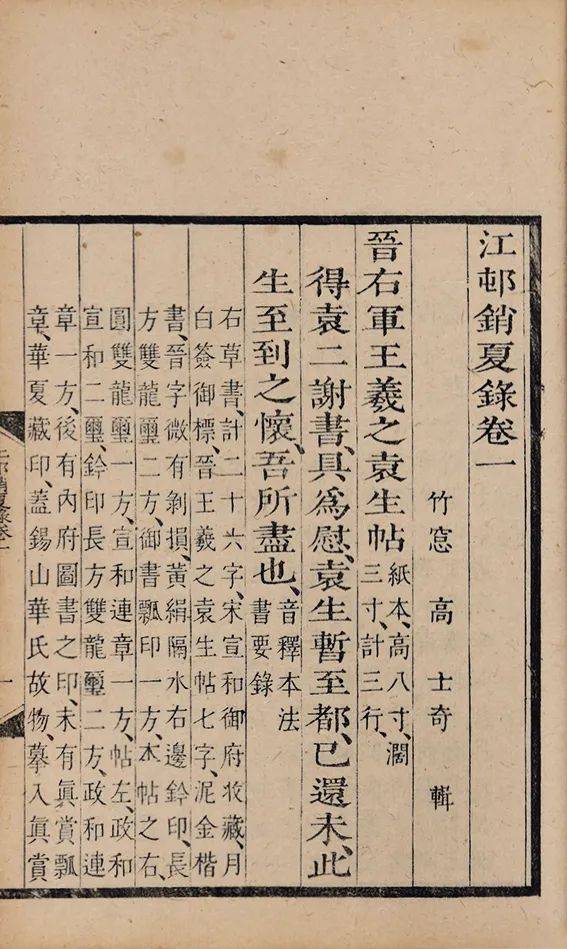 江邨銷夏錄卷一
竹窓 高 士奇 輯
晉右軍王羲之袁生帖 紙本、高八寸、濶
三寸、計三行、
得袁二謝書、具爲慰、袁生暫至都、已還未、此
生至到之懷、吾所盡也、 音釋本法
書要錄
右草書、計二十六字、宋宣和御府收藏、月
白簽御標、晉王羲之袁生帖七字、泥金楷
書、晉字微有剝損、黃絹隔水右邊鈐印、長
方雙龍璽二方、御書瓢印一方、本帖之右、
圓雙龍璽一方、宣和連章一方、帖左、政和
宣和二璽、鈐印長方雙龍璽二方、政和連
章一方、後有內府圖書之印、末有眞賞瓢
章、華夏藏印、蓋錫山華氏故物、摹入眞賞
江邨銷夏錄卷一
一